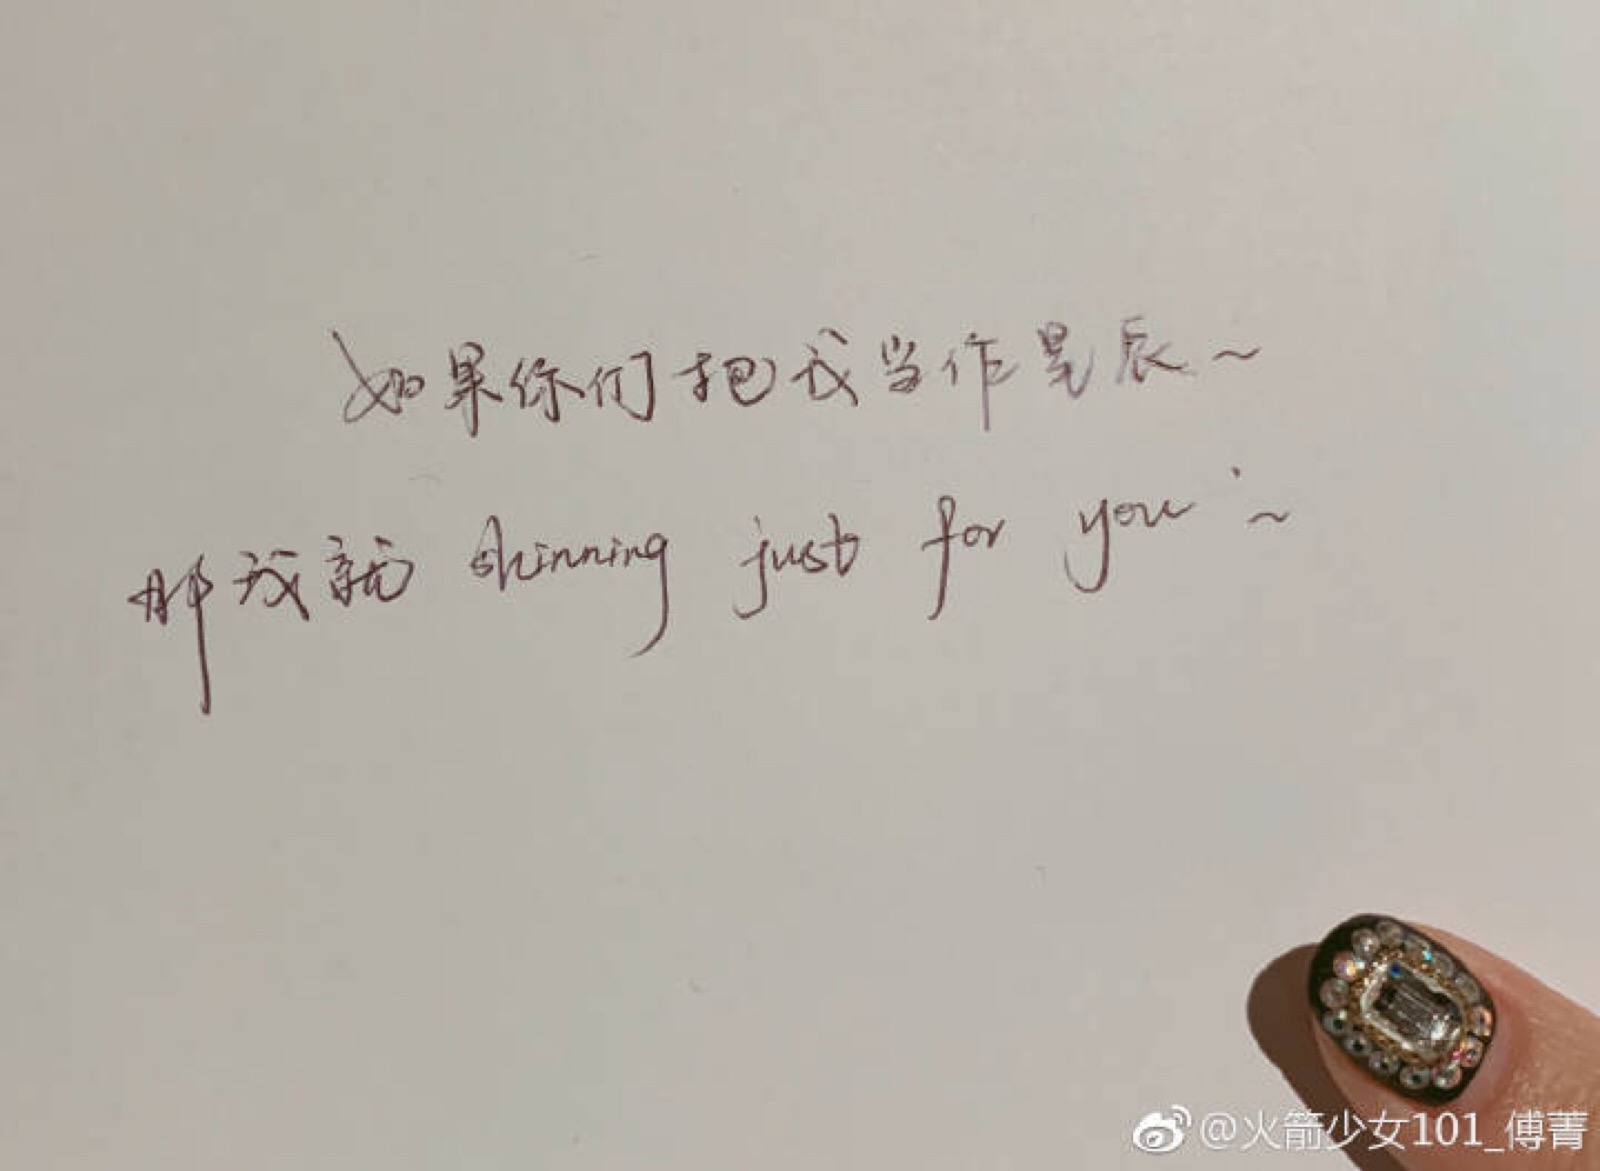 如果你们把我当作星辰~
那我就 shinning just for you ~
@火箭少女101_傅菁